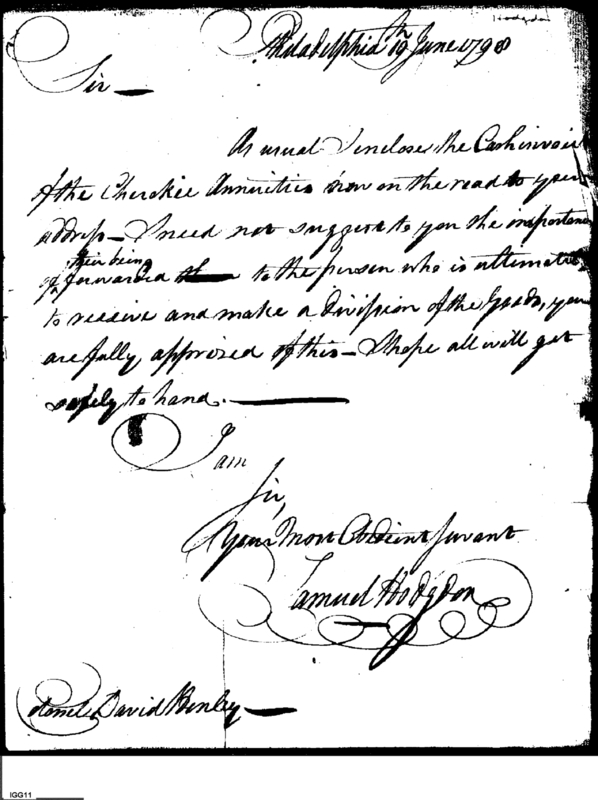 Hodgdon
Philadelphia 19th June 1798
Sir —
As usual I enclose the Cash invoic
of the Cherokee Annuities now on the road to your
address — I need not suggest to you the importance
of their being forwarded to the person who is ultimate
to receive and make a division of the Goods, you
are fully apprized of this — I hope all will get
safely to hand. —
I am
Sir,
Your Most Obedient Servant
Samuel Hodgdon
olonel David Henley —
IGG11